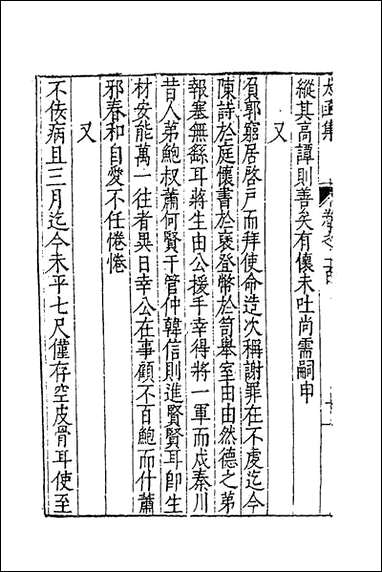 太函集
卷之一百
縱其高譚則善矣有懷未吐尚需嗣申
又
負郭窮居啓戸而拜使命造次稱謝罪在不虔迄今
陳詩於庭懷書於袠登幣於笥舉室由由然德之弟
報塞無繇耳將生由公援手幸得將一軍而戍秦川
昔人弟鮑叔蕭何賢于管仲韓信則進賢賢耳卽生
材安能萬一往者異日幸公在事顧不百鮑而什蕭
邪春和自愛不任惓惓
又
不佞病且三月迄今未平七尺僅存空皮骨耳使至